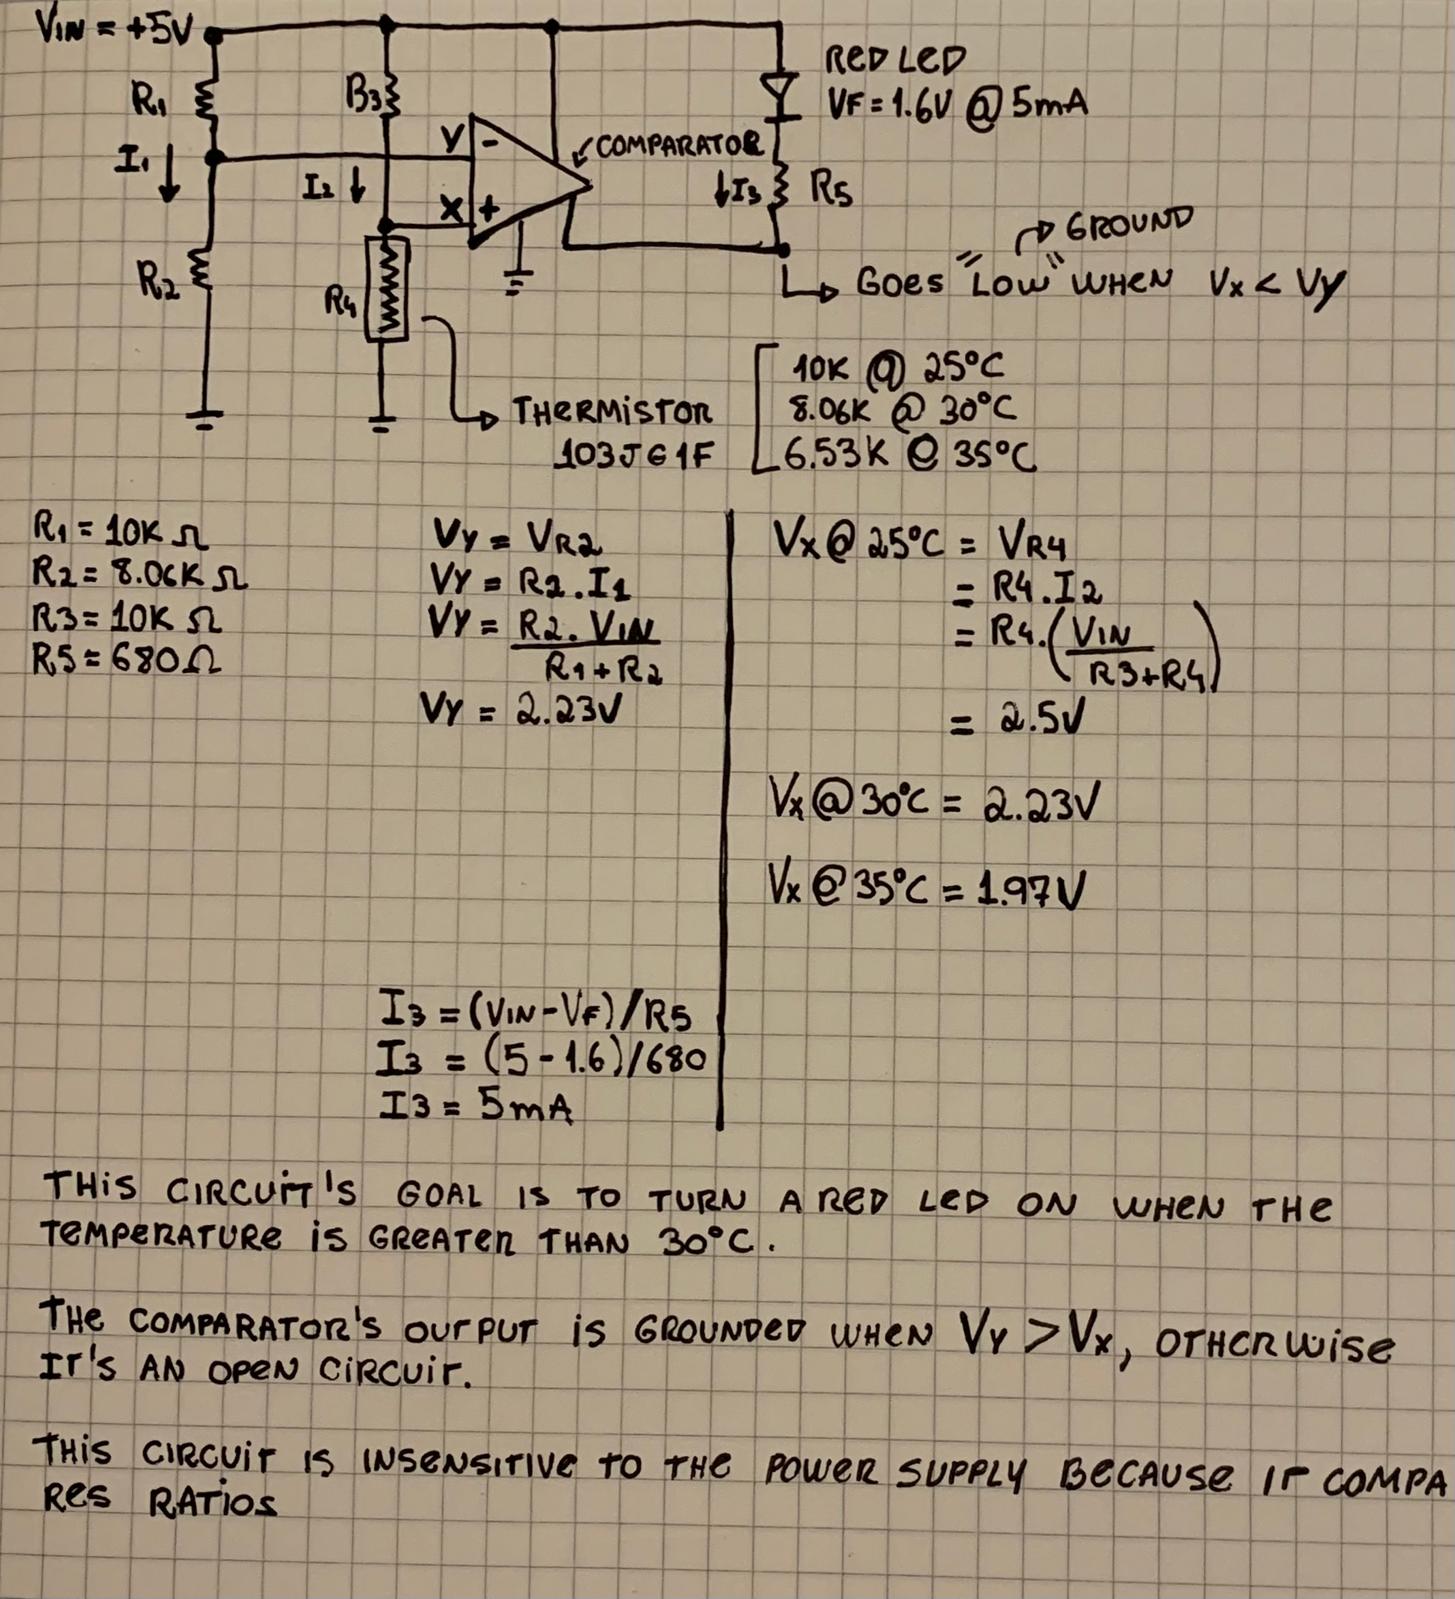 VIN = +5V
R1
B3
I1
I2
R2
R4
Y
-
X
+
COMPARATOR
RED LED
VF = 1.6V @ 5mA
I3
R5
GROUND
GOES "LOW" WHEN VX < VY
THERMISTOR
103JG1F
10K @ 25°C
8.06K @ 30°C
6.53K @ 35°C
R1 = 10K Ω
R2 = 8.06K Ω
R3 = 10K Ω
R5 = 680Ω
VY = VR2
VY = R2.I1
VY = R2.VIN
R1+R2
VY = 2.23V
I3 = (VIN-VF)/R5
I3 = (5-1.6)/680
I3 = 5mA
VX @ 25°C = VR4
= R4.I2
= R4.(VIN
R3+R4)
= 2.5V
VX @ 30°C = 2.23V
VX @ 35°C = 1.97V
THIS CIRCUIT'S GOAL IS TO TURN A RED LED ON WHEN THE
TEMPERATURE IS GREATER THAN 30°C.
THE COMPARATOR'S OUTPUT IS GROUNDED WHEN VY > VX, OTHERWISE
IT'S AN OPEN CIRCUIT.
THIS CIRCUIT IS INSENSITIVE TO THE POWER SUPPLY BECAUSE IT COMPA
RES RATIOS